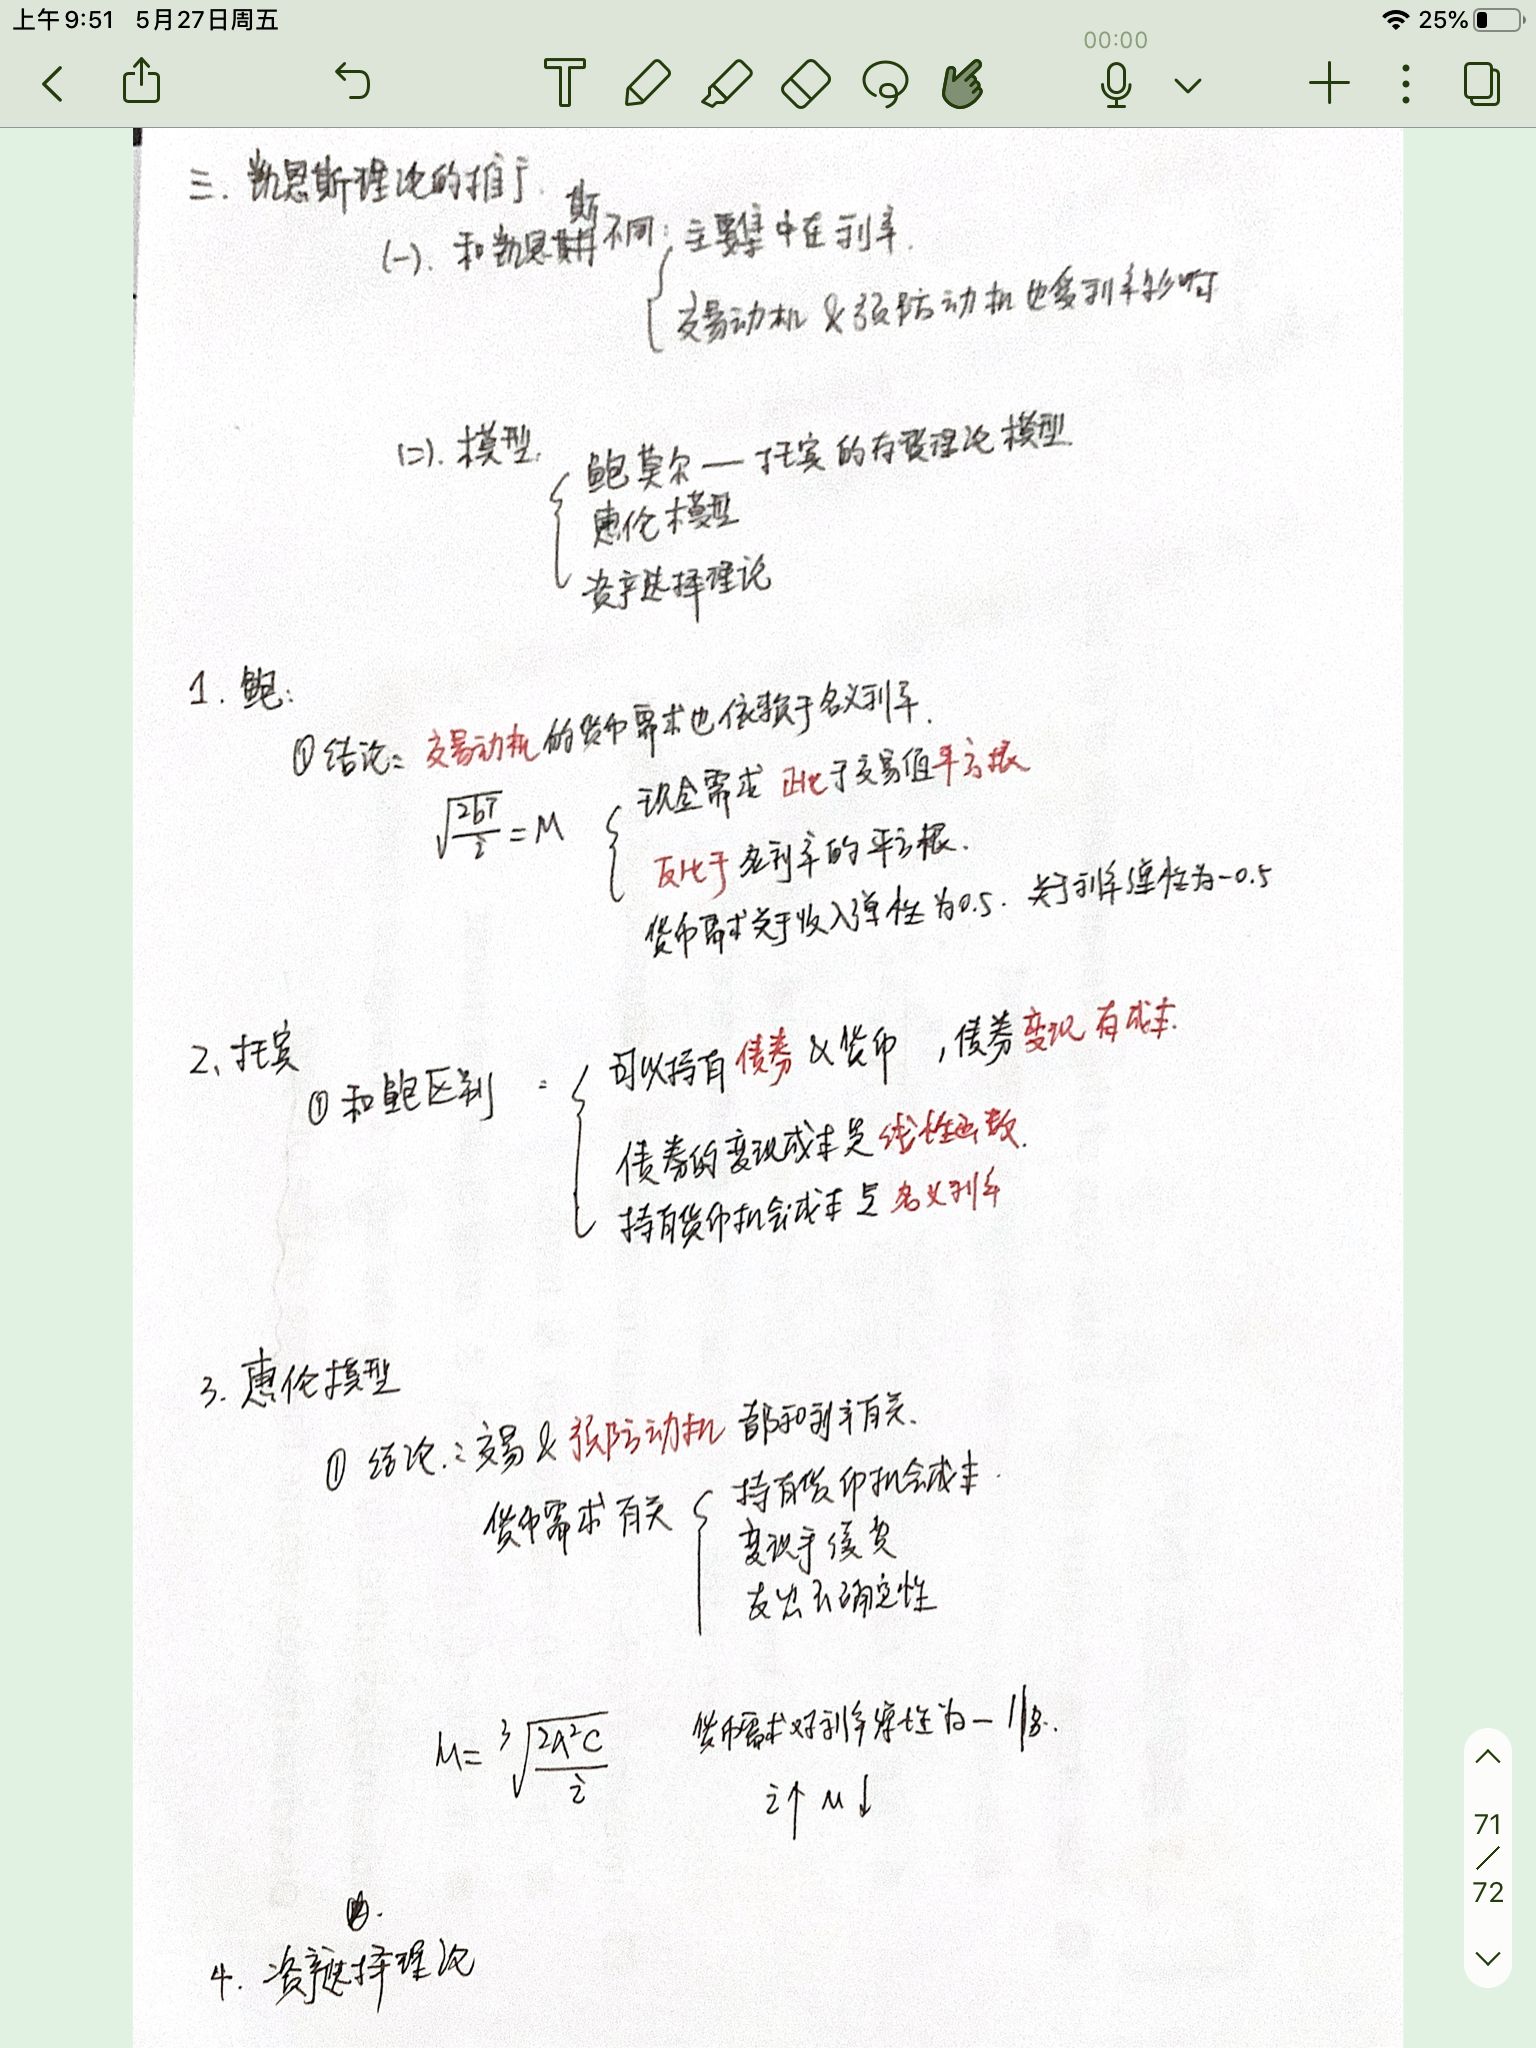 上午9:51 5月27日周五
25%
00:00
三. 凯恩斯理论的推广.
(一). 和凯恩斯不同: 主要集中在利率.
交易动机 & 预防动机也受利率影响
(二). 模型.
鲍莫尔—托宾的存货理论模型
惠伦模型
资产选择理论
1. 鲍:
① 结论: 交易动机的货币需求也依赖于名义利率.
现金需求正比于交易值平方根
√(2bT/i) = M
反比于名利率的平方根.
货币需求关于收入弹性为0.5. 关于利率弹性为-0.5
2、托宾
① 和鲍区别:
可以持有债券 & 货币,债券变现有成本.
债券的变现成本是线性函数.
持有货币机会成本是名义利率
3. 惠伦模型
① 结论: 交易 & 预防动机都和利率有关.
货币需求有关
持有货币机会成本.
变现手续费
支出不确定性
M= ∛(2A²C/i) 货币需求对利率弹性为-1/3.
i↑ M↓
4. 资产选择理论
71
/
72